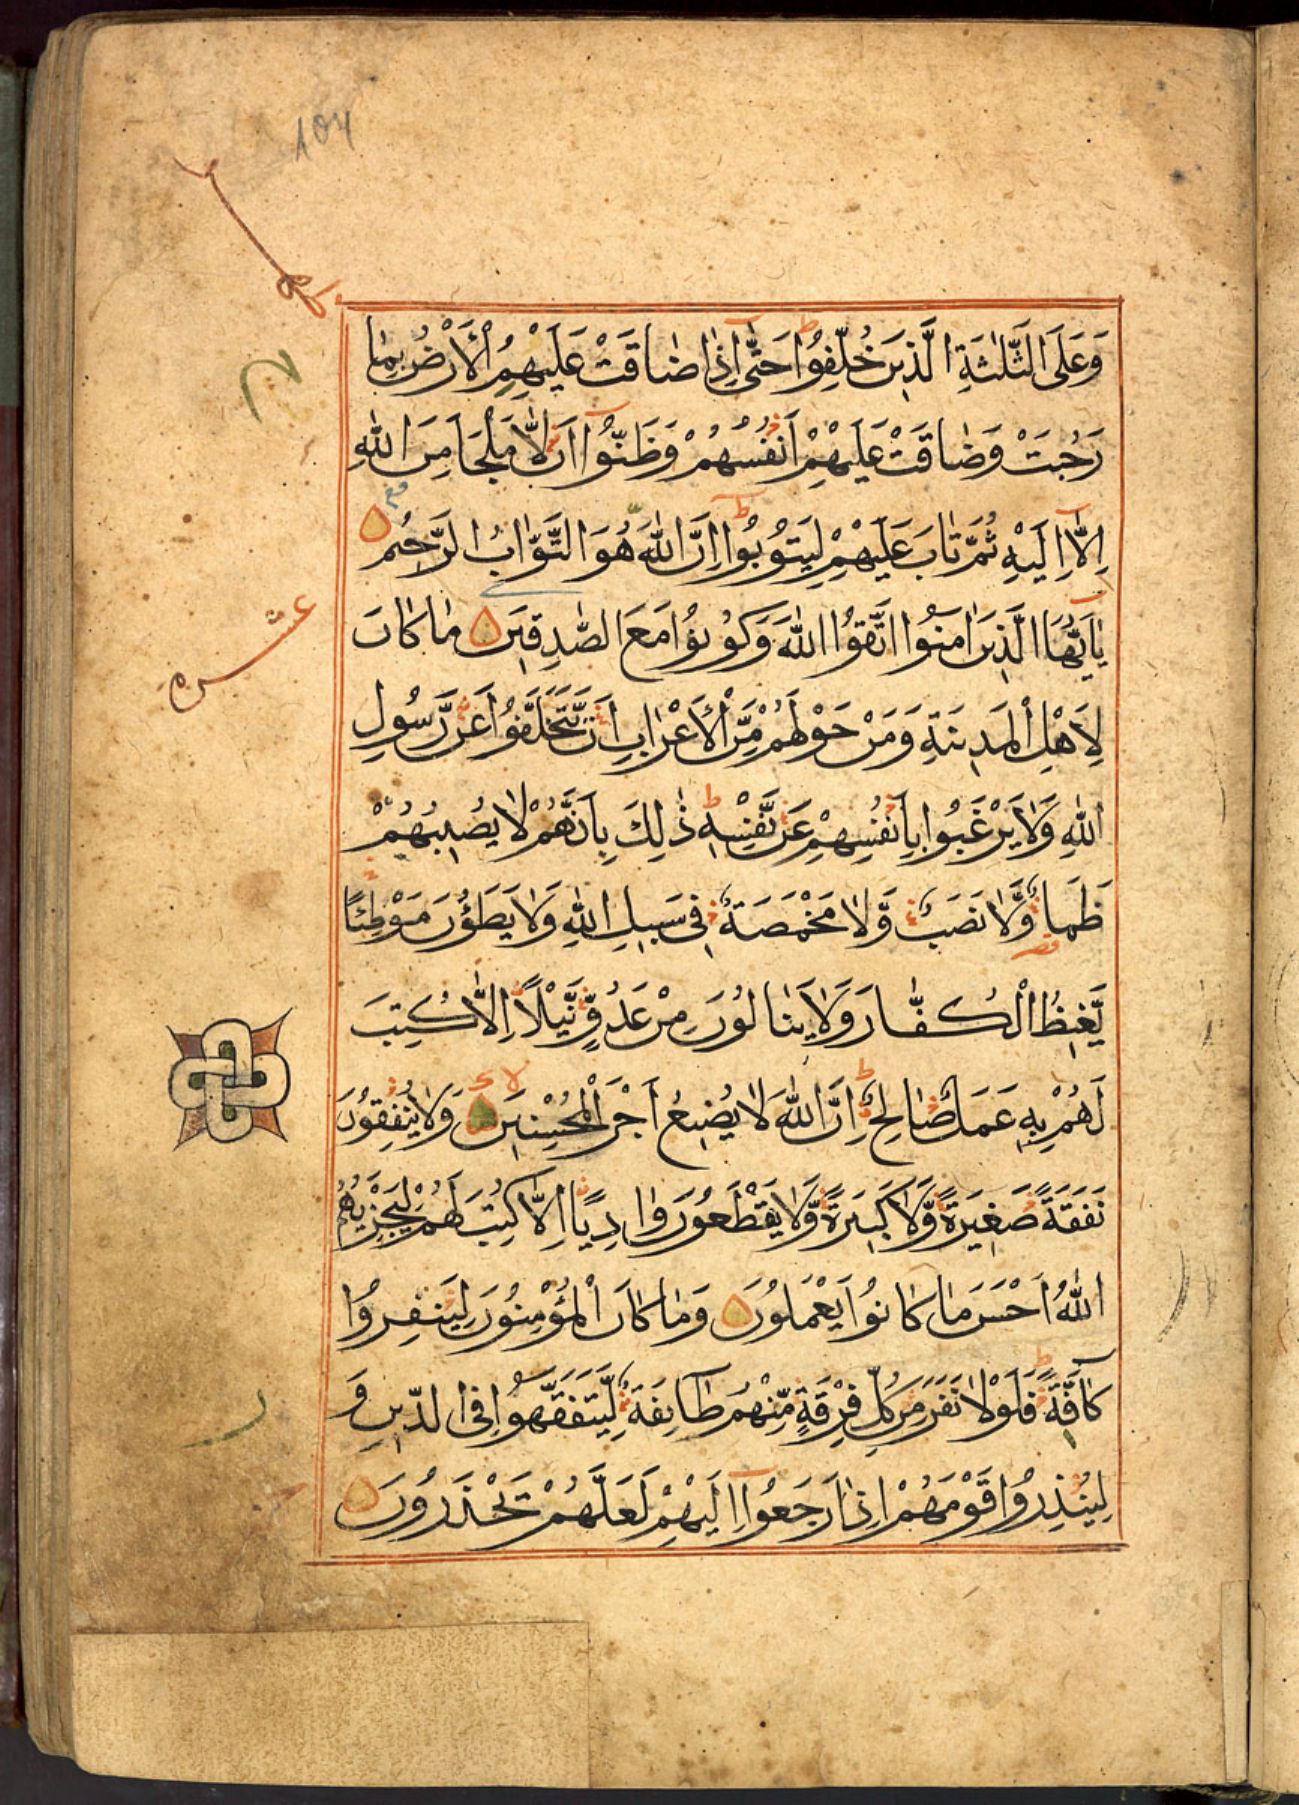 104
وَعَلَى الثَّلٰثَةِ الَّذِينَ خُلِّفُوا حَتّٰى اِذَا ضَاقَتْ عَلَيْهِمُ الْاَرْضُ بِمَا
رَحُبَتْ وَضَاقَتْ عَلَيْهِمْ اَنْفُسُهُمْ وَظَنُّوا اَنْ لَّا مَلْجَاَ مِنَ اللّٰهِ
اِلَّا اِلَيْهِ ثُمَّ تَابَ عَلَيْهِمْ لِيَتُوبُوا اِنَّ اللّٰهَ هُوَ التَّوَّابُ الرَّحِيمُ
يٰاَيُّهَا الَّذِينَ اٰمَنُوا اتَّقُوا اللّٰهَ وَكُونُوا مَعَ الصّٰدِقِينَ مَا كَانَ
عشره
لِاَهْلِ الْمَدِينَةِ وَمَنْ حَوْلَهُمْ مِّنَ الْاَعْرَابِ اَنْ يَّتَخَلَّفُوا عَنْ رَّسُولِ
اللّٰهِ وَلَا يَرْغَبُوا بِاَنْفُسِهِمْ عَنْ نَّفْسِهِ ذٰلِكَ بِاَنَّهُمْ لَا يُصِيبُهُمْ
ظَمَاٌ وَّلَا نَصَبٌ وَّلَا مَخْمَصَةٌ فِى سَبِيلِ اللّٰهِ وَلَا يَطَؤُنَ مَوْطِئًا
يَّغِيظُ الْكُفَّارَ وَلَا يَنَالُونَ مِنْ عَدُوٍّ نَّيْلًا اِلَّا كُتِبَ
لَهُمْ بِهِ عَمَلٌ صَالِحٌ اِنَّ اللّٰهَ لَا يُضِيعُ اَجْرَ الْمُحْسِنِينَ وَلَا يُنْفِقُونَ
نَفَقَةً صَغِيرَةً وَّلَا كَبِيرَةً وَّلَا يَقْطَعُونَ وَادِيًا اِلَّا كُتِبَ لَهُمْ لِيَجْزِيَهُمُ
اللّٰهُ اَحْسَنَ مَا كَانُوا يَعْمَلُونَ وَمَا كَانَ الْمُؤْمِنُونَ لِيَنْفِرُوا
كَافَّةً فَلَوْلَا نَفَرَ مِنْ كُلِّ فِرْقَةٍ مِّنْهُمْ طَآئِفَةٌ لِّيَتَفَقَّهُوا فِى الدِّينِ وَ
لِيُنْذِرُوا قَوْمَهُمْ اِذَا رَجَعُوا اِلَيْهِمْ لَعَلَّهُمْ يَحْذَرُونَ